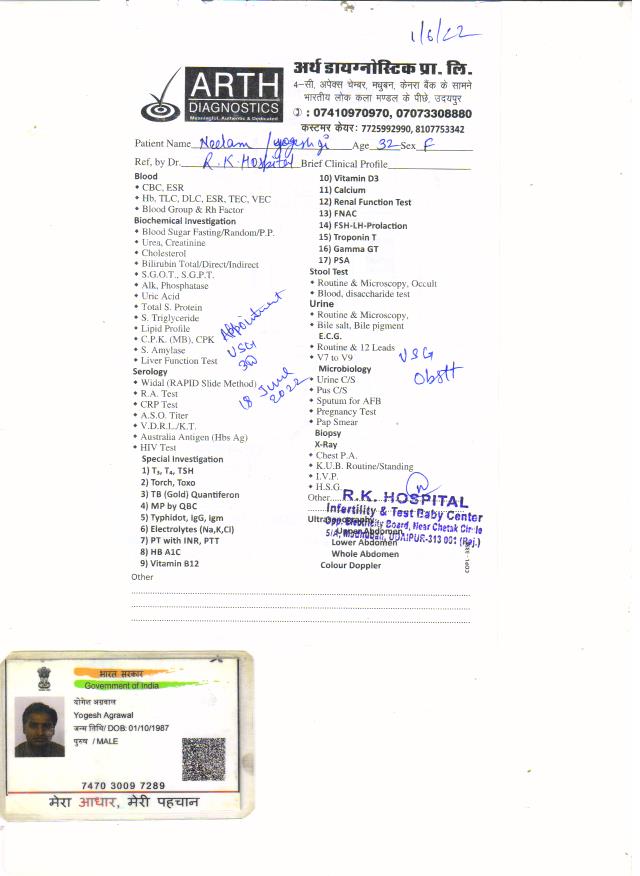 1/6/22
ARTH
DIAGNOSTICS
Meaningful, Authentic & Dedicated
अर्थ डायग्नोस्टिक प्रा. लि.
4-सी, अपेक्स चेम्बर, मधुबन, केनरा बैंक के सामने
भारतीय लोक कला मण्डल के पीछे, उदयपुर
: 07410970970, 07073308880
कस्टमर केयर: 7725992990, 8107753342
Patient Name Neelam / yogesh ji Age 32 Sex F
Ref, by Dr. R.K. Hospital Brief Clinical Profile
Blood
• CBC, ESR
• Hb, TLC, DLC, ESR, TEC, VEC
• Blood Group & Rh Factor
Biochemical Investigation
• Blood Sugar Fasting/Random/P.P.
• Urea, Creatinine
• Cholesterol
• Bilirubin Total/Direct/Indirect
• S.G.O.T., S.G.P.T.
• Alk, Phosphatase
• Uric Acid
• Total S. Protein
• S. Triglyceride
• Lipid Profile
• C.P.K. (MB), CPK
• S. Amylase
• Liver Function Test
Serology
• Widal (RAPID Slide Method)
• R.A. Test
• CRP Test
• A.S.O. Titer
• V.D.R.L./K.T.
• Australia Antigen (Hbs Ag)
• HIV Test
Special Investigation
1) T₃, T₄, TSH
2) Torch, Toxo
3) TB (Gold) Quantiferon
4) MP by QBC
5) Typhidot, IgG, Igm
6) Electrolytes (Na,K,Cl)
7) PT with INR, PTT
8) HB A1C
9) Vitamin B12
Other
Appointment
USG
3D
18 June
2022
10) Vitamin D3
11) Calcium
12) Renal Function Test
13) FNAC
14) FSH-LH-Prolaction
15) Troponin T
16) Gamma GT
17) PSA
Stool Test
• Routine & Microscopy, Occult
• Blood, disaccharide test
Urine
• Routine & Microscopy,
• Bile salt, Bile pigment
E.C.G.
• Routine & 12 Leads
• V7 to V9
Microbiology
• Urine C/S
• Pus C/S
• Sputum for AFB
• Pregnancy Test
• Pap Smear
Biopsy
X-Ray
• Chest P.A.
• K.U.B. Routine/Standing
• I.V.P.
• H.S.G.
Other
USG
Obstt
R.K. HOSPITAL
Infertility & Test Baby Center
Opp. Electricity Board, Near Chetak Circle
5/A, Madhuban, UDAIPUR-313 001 (Raj.)
Ultrasonography
Upper Abdomen
Lower Abdomen
Whole Abdomen
Colour Doppler
भारत सरकार
Government of India
योगेश अग्रवाल
Yogesh Agrawal
जन्म तिथि/ DOB: 01/10/1987
पुरुष / MALE
7470 3009 7289
मेरा आधार, मेरी पहचान